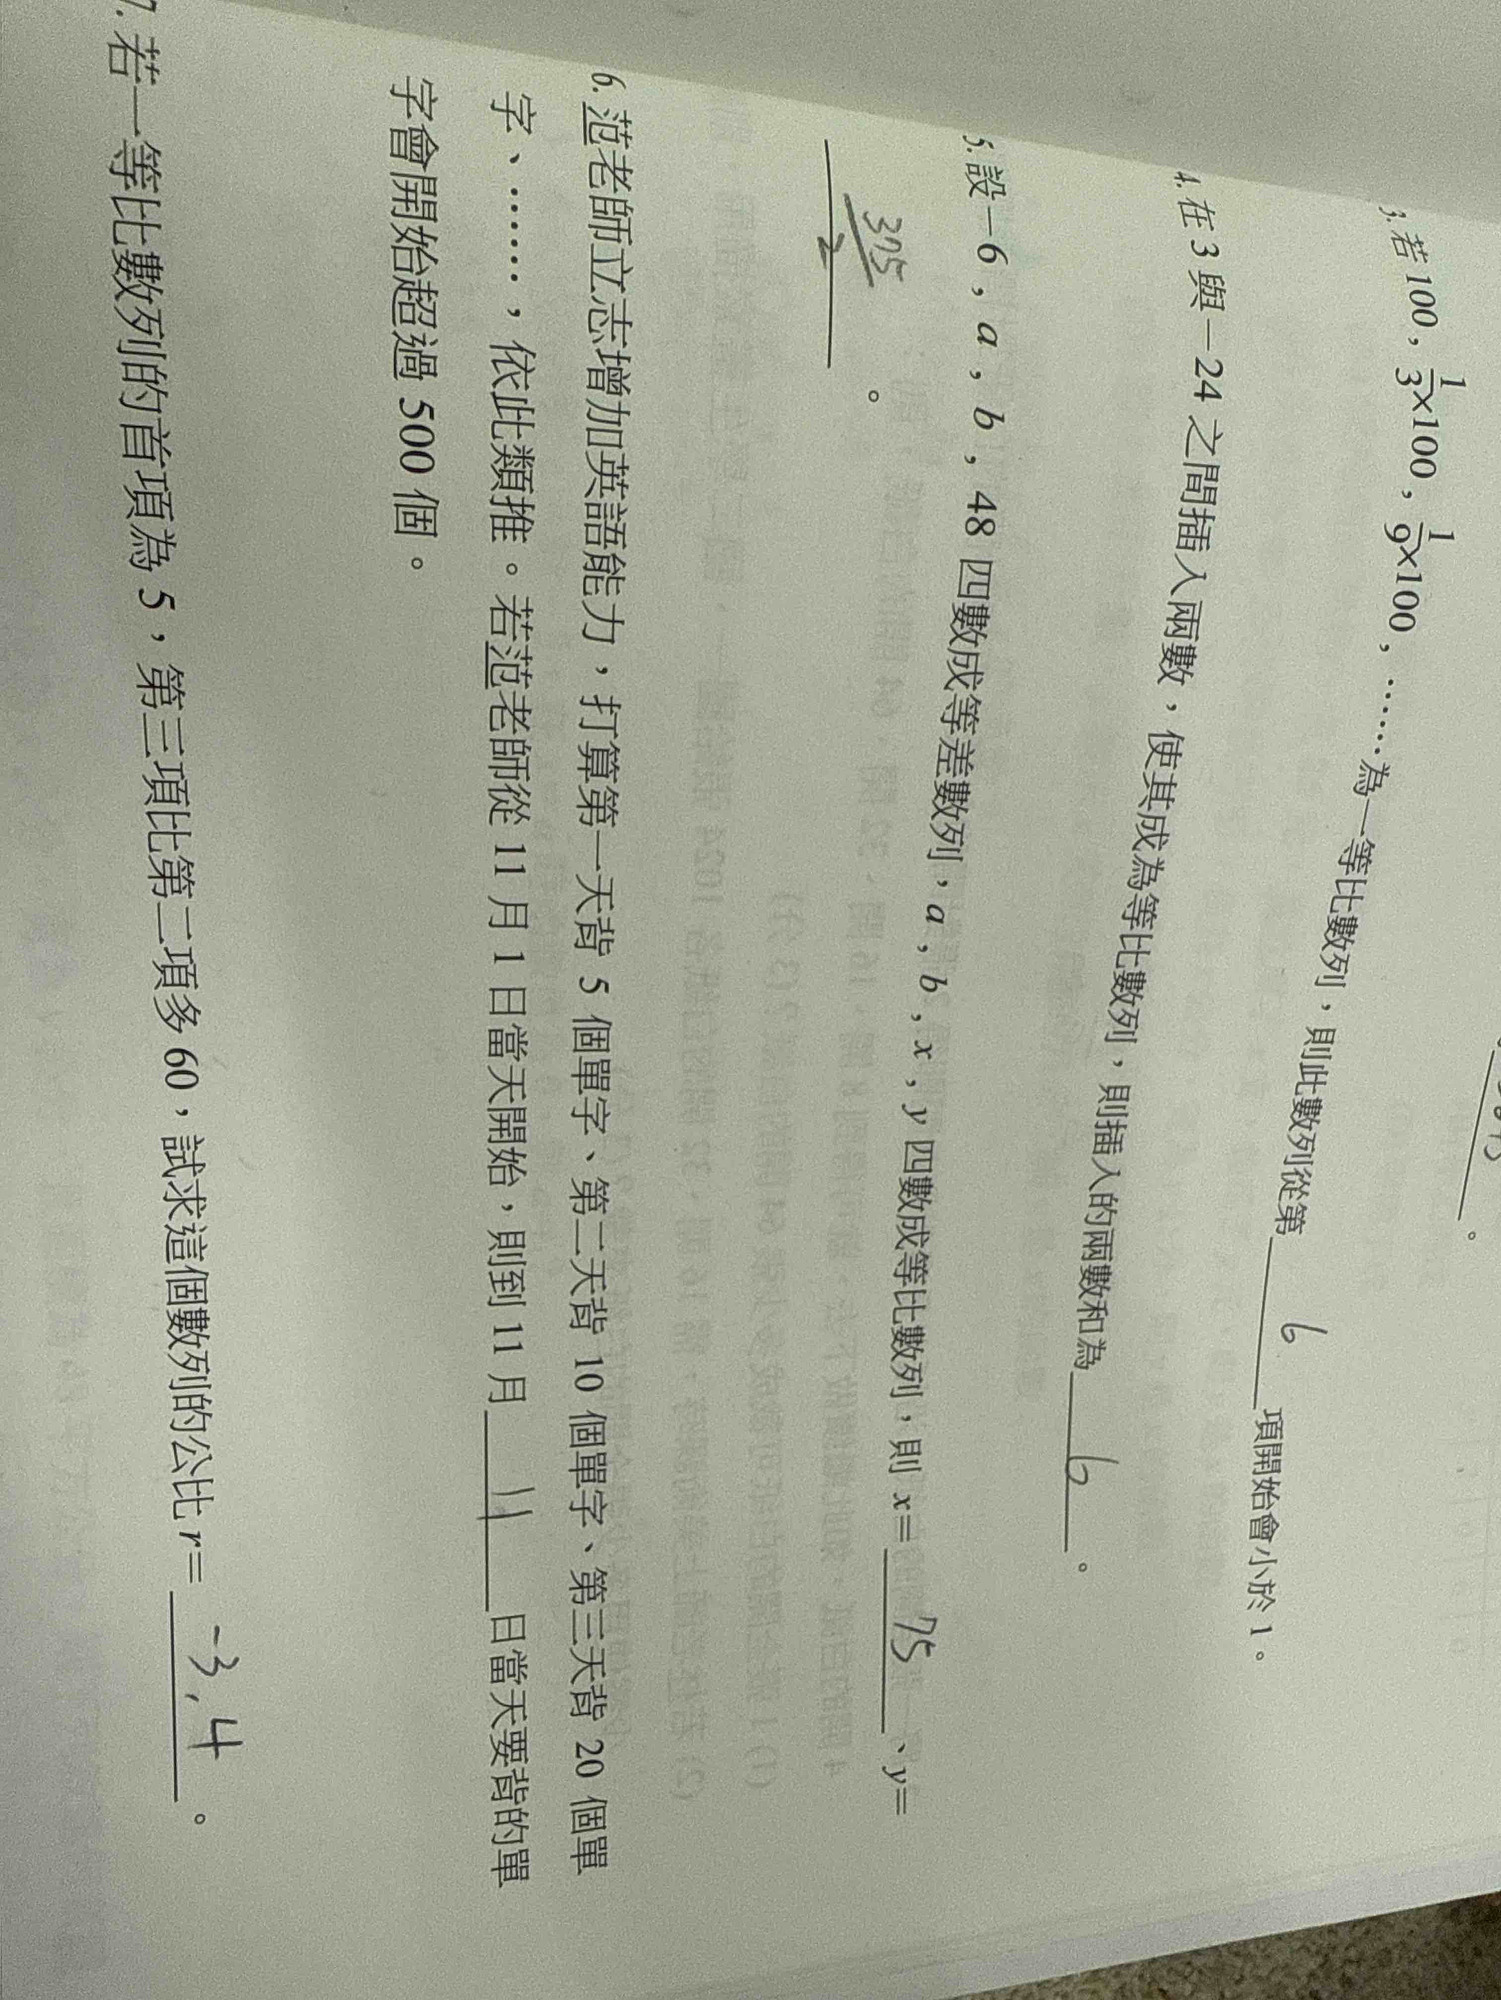 3. 若 100，1/3×100，1/9×100，……為一等比數列，則此數列從第 6 項開始會小於 1。
4. 在 3 與－24 之間插入兩數，使其成為等比數列，則插入的兩數和為 6 。
5. 設－6，a，b，48 四數成等差數列，a，b，x，y 四數成等比數列，則 x＝ 75 、y＝
375/2 。
6. 范老師立志增加英語能力，打算第一天背 5 個單字、第二天背 10 個單字、第三天背 20 個單
字、……，依此類推。若范老師從 11 月 1 日當天開始，則到 11 月 11 日當天要背的單
字會開始超過 500 個。
7. 若一等比數列的首項為 5，第三項比第二項多 60，試求這個數列的公比 r＝ -3, 4 。